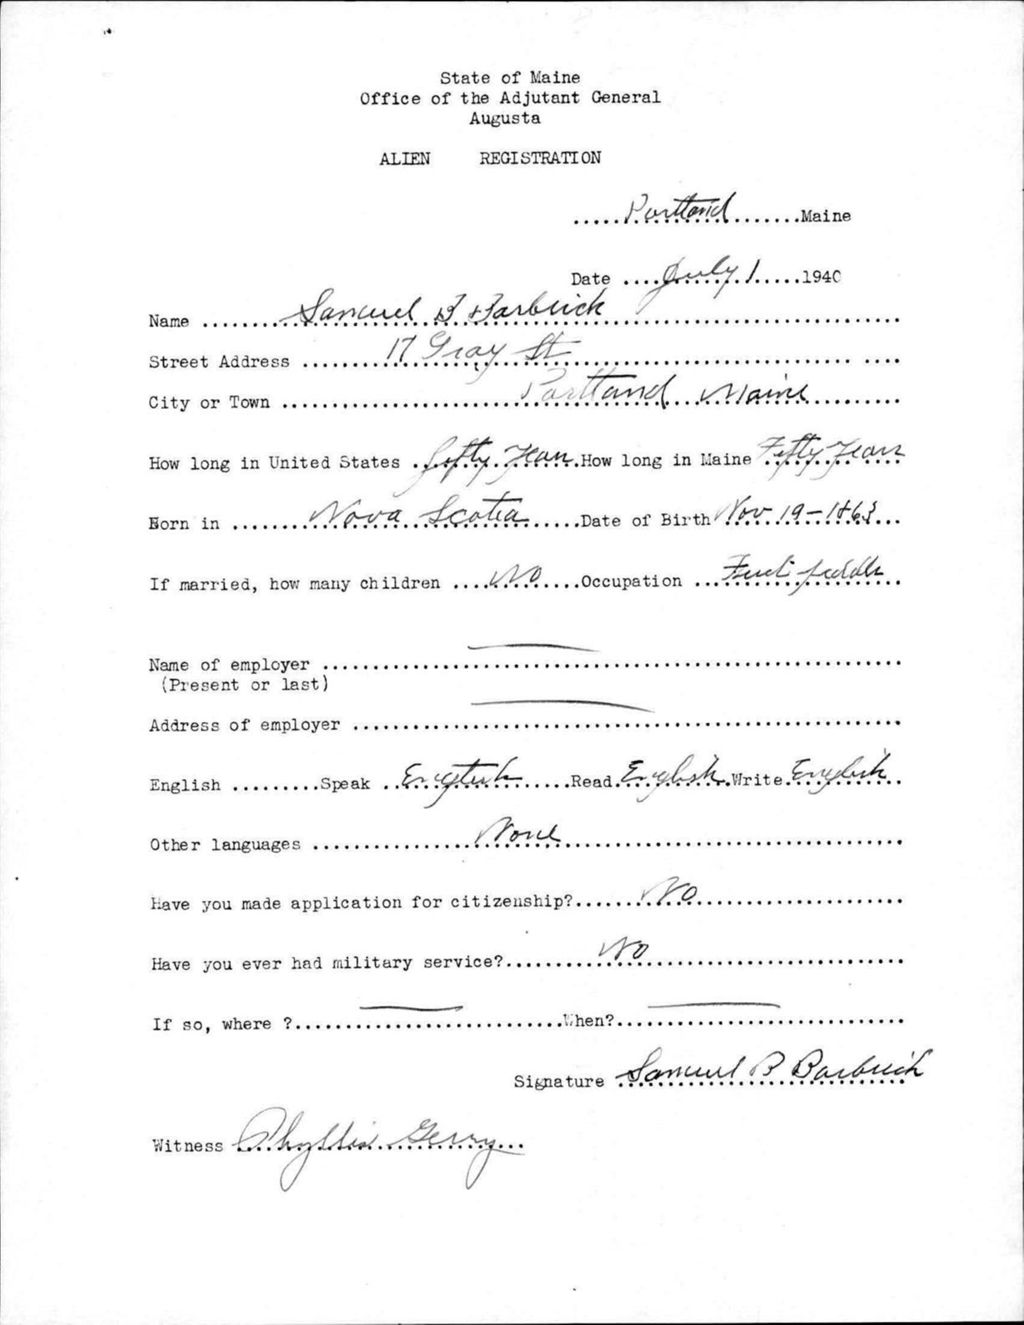 State of Maine
Office of the Adjutant General
Augusta
ALIEN REGISTRATION
.....Portland.......Maine
Date ....July 1.....1940
Name ........Samuel B Barbrick........
Street Address ........17 Gray St........
City or Town ........Portland Maine........
How long in United States ..Fifty Years.How long in Maine Fifty Years
Born in ........Nova Scotia......Date of Birth Nov 19-1863...
If married, how many children ....No....Occupation ...Fruit peddler..
Name of employer ........
(Present or last)
Address of employer ........
English .........Speak ..English......Read.English.Write.English..
Other languages ........None........
Have you made application for citizenship?.......No........
Have you ever had military service?.........No........
If so, where ?........When?........
Signature Samuel B Barbrick
Witness Phyllis Gerry...